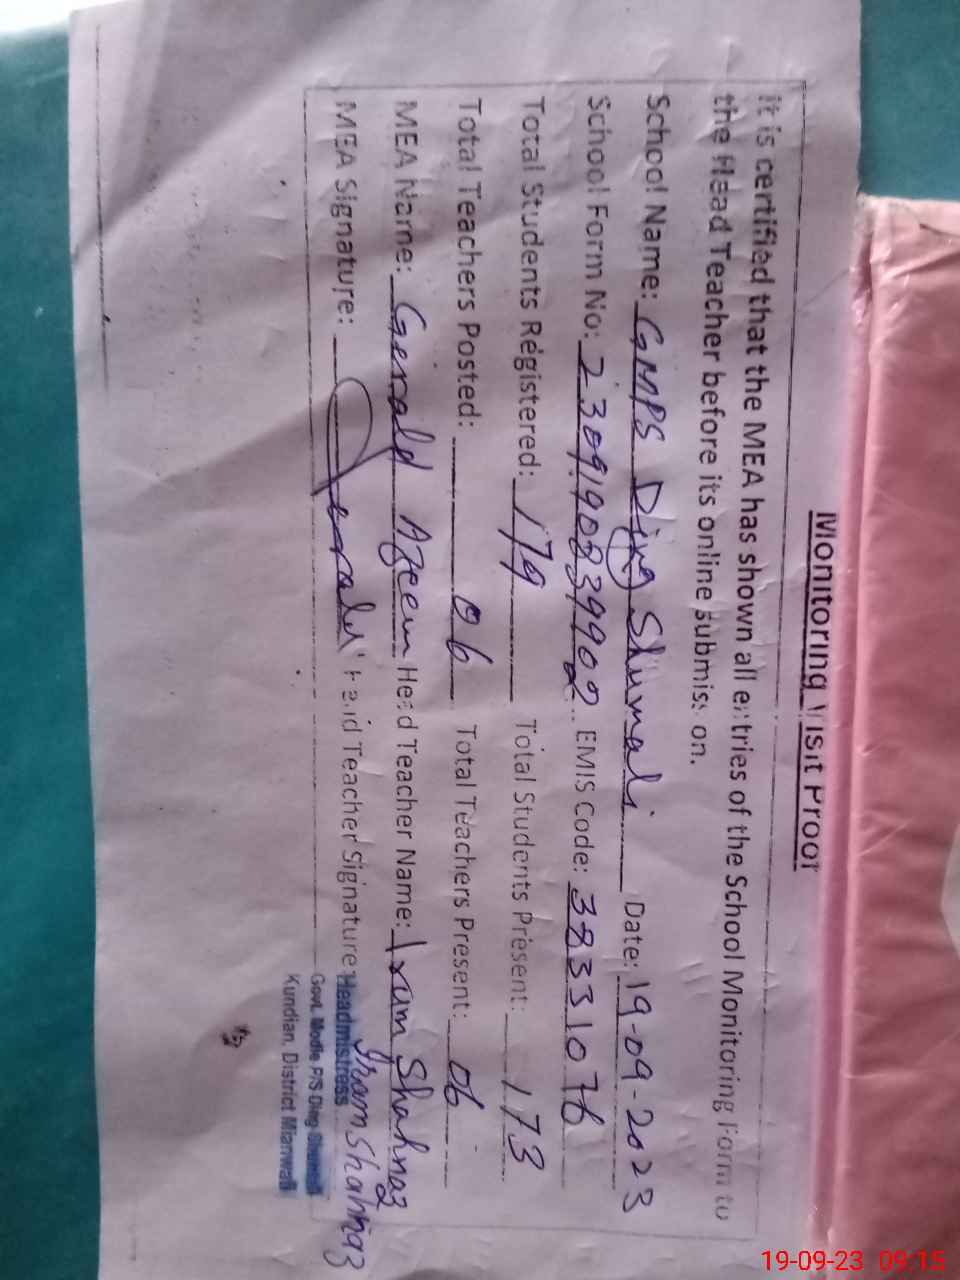 Monitoring Visit Proof
It is certified that the MEA has shown all entries of the School Monitoring Form to
the Head Teacher before its online submission.
School Name: GMPS Ding Shumali Date: 19-09-2023
School Form No: EMIS Code: 38331076
Total Students Registered: 179 Total Students Present: 173
Total Teachers Posted: 06 Total Teachers Present: 06
MEA Name: Gerald Azeem Head Teacher Name: Irum Shahnaz
MEA Signature: Gerald Head Teacher Signature: Iram Shahnaz
Headmistress
Govt. Modle P/S Ding Shumali
Kundian, District Mianwali
19-09-23 09:15